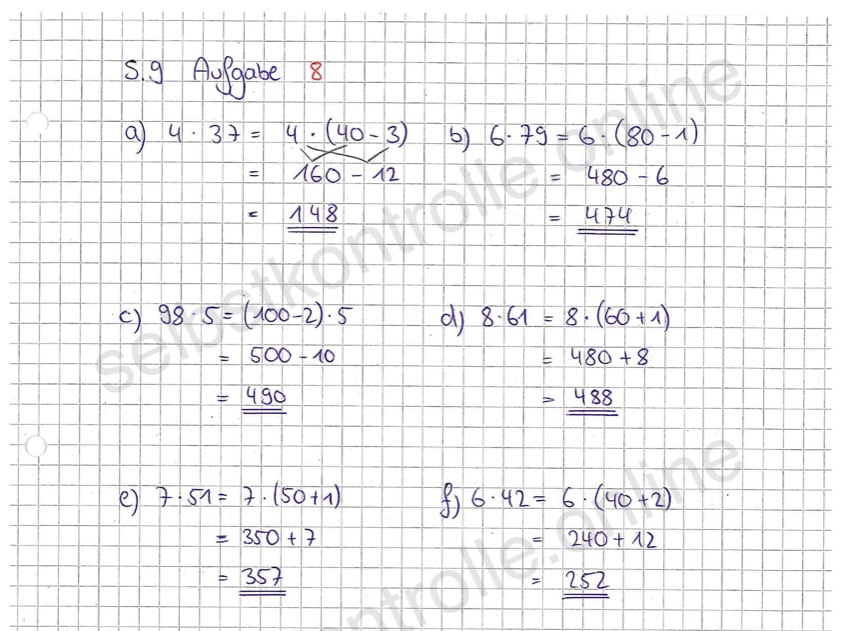 S.9 Aufgabe 8
a) 4 · 37 = 4 · (40 - 3)
= 160 - 12
= 148
b) 6 · 79 = 6 · (80 - 1)
= 480 - 6
= 474
c) 98 · 5 = (100 - 2) · 5
= 500 - 10
= 490
d) 8 · 61 = 8 · (60 + 1)
= 480 + 8
= 488
e) 7 · 51 = 7 · (50 + 1)
= 350 + 7
= 357
f) 6 · 42 = 6 · (40 + 2)
= 240 + 12
= 252
selbstkontrolle.online
selbstkontrolle.online